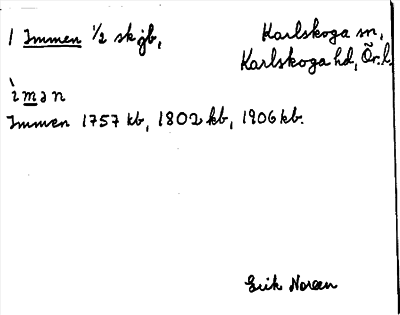 1 Immen 1/2 sk jb, Karlskoga sn,
Karlskoga hd, Ör. l.
ìmən
Immen 1757 kb, 1802 kb, 1906 kb.
Erik Noreen